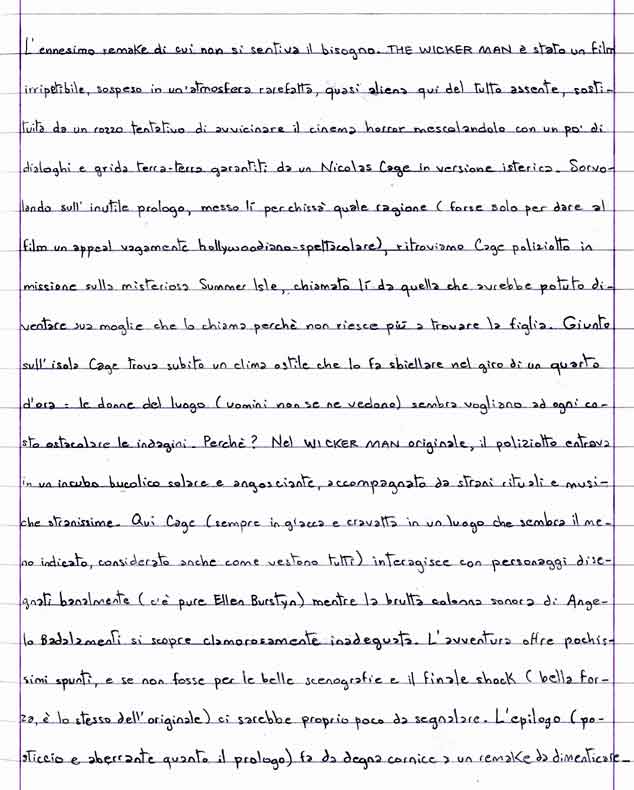 L'ennesimo remake di cui non si sentiva il bisogno. THE WICKER MAN è stato un film
irripetibile, sospeso in un'atmosfera rarefatta, quasi aliena qui del tutto assente, sosti-
tuita da un rozzo tentativo di avvicinare il cinema horror mescolandolo con un po' di
dialoghi e grida terra-terra garantiti da un Nicolas Cage in versione isterica. Sorvo-
lando sull'inutile prologo, messo lí per chissà quale ragione (forse solo per dare al
film un appeal vagamente hollywoodiano-spettacolare), ritroviamo Cage poliziotto in
missione sulla misteriosa Summer Isle, chiamato lí da quella che avrebbe potuto di-
ventare sua moglie che lo chiama perchè non riesce piú a trovare la figlia. Giunto
sull'isola Cage trova subito un clima ostile che lo fa sbiellare nel giro di un quarto
d'ora: le donne del luogo (uomini non se ne vedono) sembra vogliano ad ogni co-
sto ostacolare le indagini. Perchè? Nel WICKER MAN originale, il poliziotto entrava
in un incubo bucolico solare e angosciante, accompagnato da strani rituali e musi-
che stranissime. Qui Cage (sempre in giacca e cravatta in un luogo che sembra il me-
no indicato, considerato anche come vestono tutti) interagisce con personaggi dise-
gnati banalmente (c'è pure Ellen Burstyn) mentre la brutta colonna sonora di Ange-
lo Badalamenti si scopre clamorosamente inadeguata. L'avventura offre pochis-
simi spunti, e se non fosse per le belle scenografie e il finale shock (bella for-
za, è lo stesso dell'originale) ci sarebbe proprio poco da segnalare. L'epilogo (po-
sticcio e aberrante quanto il prologo) fa da degna cornice a un remake da dimenticare.